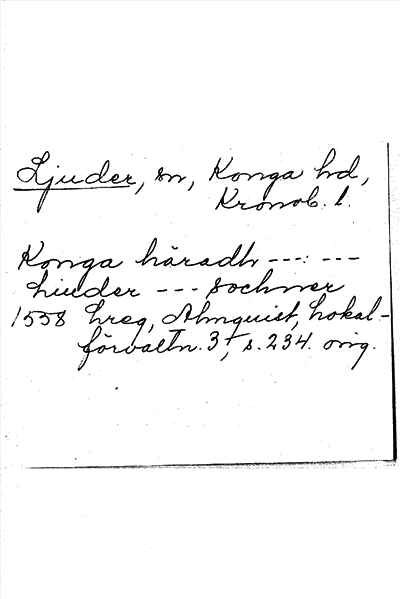 Ljuder, sn, Konga hd,
Kronob. l.
Konga häradh ---:---
Liuder --- sochner
1558 Lreg, Almquist, Lokal-
förvaltn. 3, s. 234. orig.